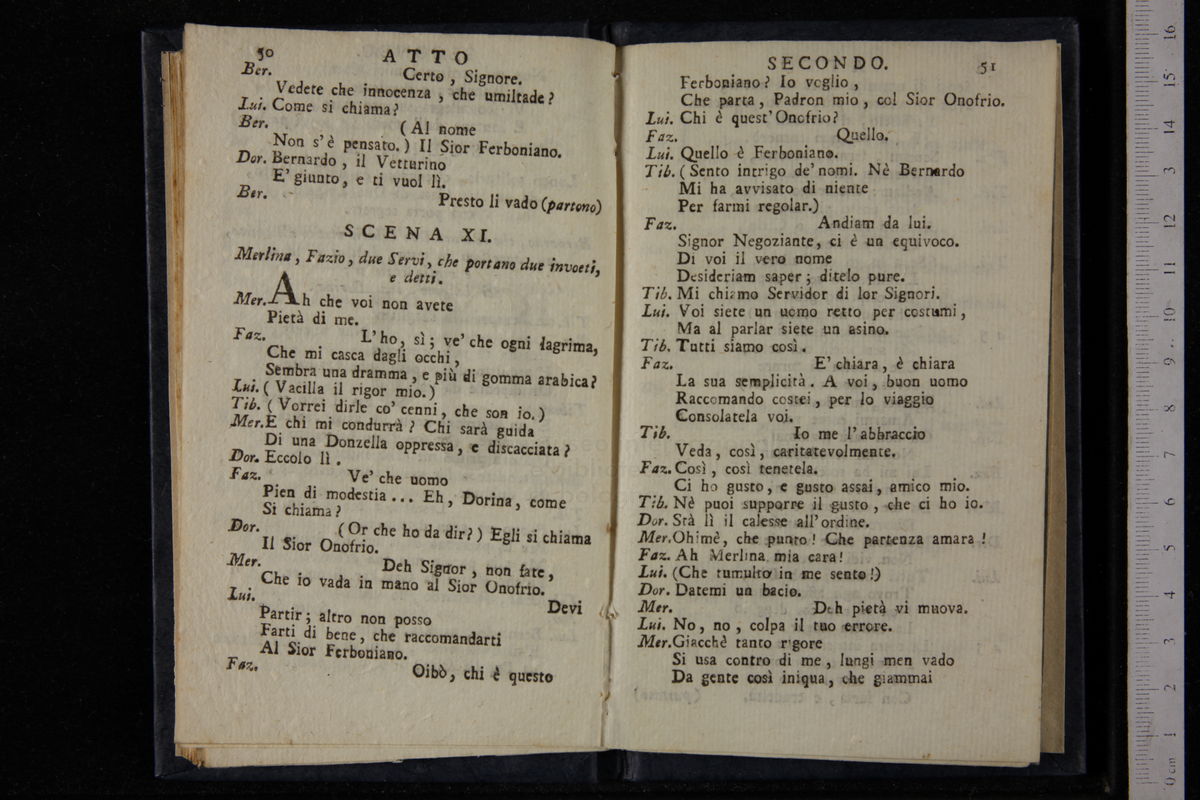 50 ATTO
Ber. Certo, Signore.
Vedete che innocenza, che umiltade?
Lui. Come si chiama?
Ber. (Al nome
Non s'è pensato.) Il Sior Ferboniano.
Dor. Bernardo, il Vetturino
E' giunto, e ti vuol lì.
Ber. Presto li vado (partono)
SCENA XI.
Merlina, Fazio, due Servi, che portano due invoeti,
e detti.
Mer. Ah che voi non avete
Pietà di me.
Faz. L'ho, sì; ve' che ogni lagrima,
Che mi casca dagli occhi,
Sembra una dramma, e più di gomma arabica?
Lui. (Vacilla il rigor mio.)
Tib. (Vorrei dirle co' cenni, che son io.)
Mer. E chi mi condurrà? Chi sarà guida
Di una Donzella oppressa, e discacciata?
Dor. Eccolo lì.
Faz. Ve' che uomo
Pien di modestia... Eh, Dorina, come
Si chiama?
Dor. (Or che ho da dir?) Egli si chiama
Il Sior Onofrio.
Mer. Deh Signor, non fate,
Che io vada in mano al Sior Onofrio.
Lui. Devi
Partir; altro non posso
Farti di bene, che raccomandarti
Al Sior Ferboniano.
Faz. Oibò, chi è questo
SECONDO. 51
Ferboniano? Io voglio,
Che parta, Padron mio, col Sior Onofrio.
Lui. Chi è quest'Onofrio?
Faz. Quello.
Lui. Quello è Ferboniano.
Tib. (Sento intrigo de' nomi. Nè Bernardo
Mi ha avvisato di niente
Per farmi regolar.)
Faz. Andiam da lui.
Signor Negoziante, ci è un equivoco.
Di voi il vero nome
Desideriam saper; ditelo pure.
Tib. Mi chiamo Servidor di lor Signori.
Lui. Voi siete un uomo retto per costumi,
Ma al parlar siete un asino.
Tib. Tutti siamo così.
Faz. E' chiara, è chiara
La sua semplicità. A voi, buon uomo
Raccomando costei, per lo viaggio
Consolatela voi.
Tib. Io me l'abbraccio
Veda, così, caritatevolmente.
Faz. Così, così tenetela.
Ci ho gusto, e gusto assai, amico mio.
Tib. Nè puoi supporre il gusto, che ci ho io.
Dor. Stà lì il calesse all'ordine.
Mer. Ohimè, che punto! Che partenza amara!
Faz. Ah Merlina mia cara!
Lui. (Che tumulto in me sento!)
Dor. Datemi un bacio.
Mer. Deh pietà vi muova.
Lui. No, no, colpa il tuo errore.
Mer. Giacchè tanto rigore
Si usa contro di me, lungi men vado
Da gente così iniqua, che giammai
16
15
14
13
12
11
10
9
8
7
6
5
4
3
2
1
0 cm